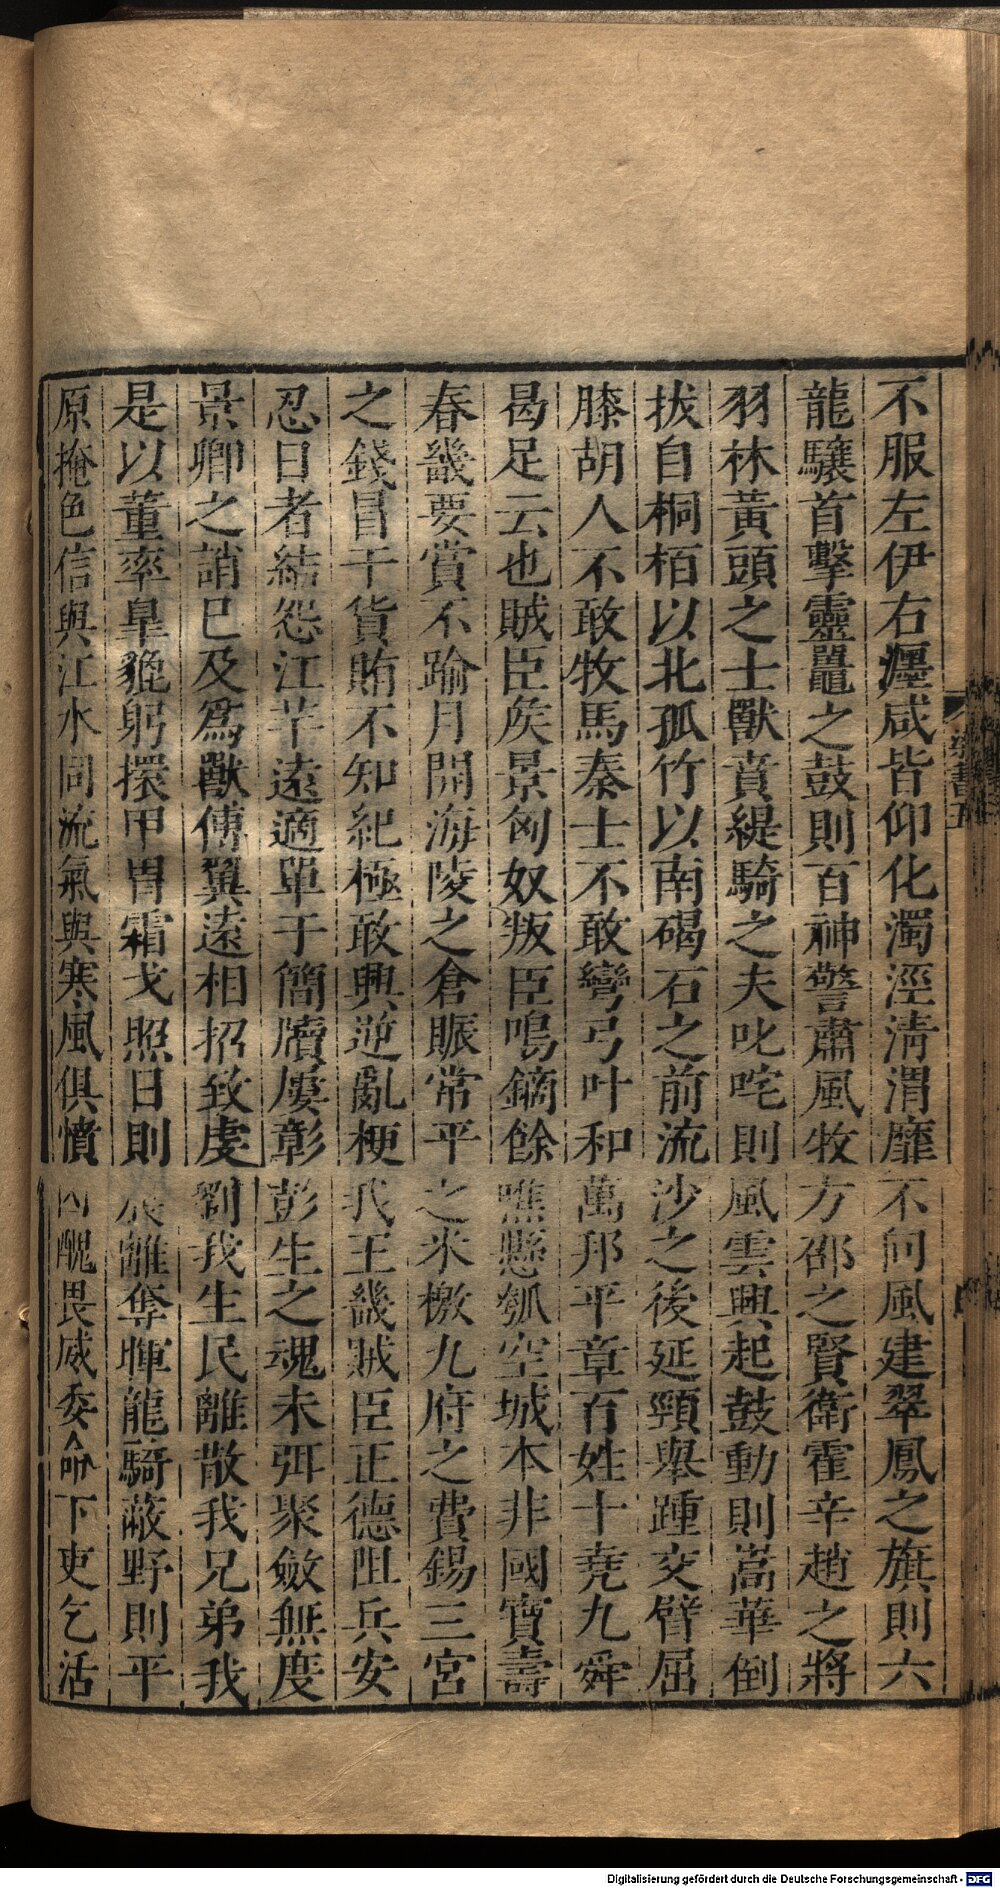 不服左伊右瀍咸皆仰化濁涇清渭靡不向風建翠鳳之旗則六
龍驤首擊靈鼉之鼓則百神警肅風牧方邵之賢衛霍辛趙之將
羽林黃頭之士獸賁緹騎之夫叱咤則風雲興起鼓動則嵩華倒
拔自桐栢以北孤竹以南碣石之前流沙之後延頸舉踵交臂屈
膝胡人不敢牧馬秦士不敢彎弓叶和萬邦平章百姓十堯九舜
曷足云也賊臣矦景匈奴叛臣鳴鏑餘噍懸瓠空城本非國寶壽
春畿要賞不踰月開海陵之倉賑常平之米檄九府之費錫三宮
之錢冒干貨賄不知紀極敢興逆亂梗我王畿賊臣正德阻兵安
忍日者結怨江芉遠適單于簡牘屢彰彭生之魂未弭聚斂無度
景卿之誚巳及爲獸傅翼遠相招致虔劉我生民離散我兄弟我
是以董率皐貔躬擐甲冑霜戈照日則晨離奪暉龍騎蔽野則平
原掩色信與江水同流氣與寒風俱憤凶醜畏威委命下吏乞活
梁書五
Digitalisierung gefördert durch die Deutsche Forschungsgemeinschaft - DFG